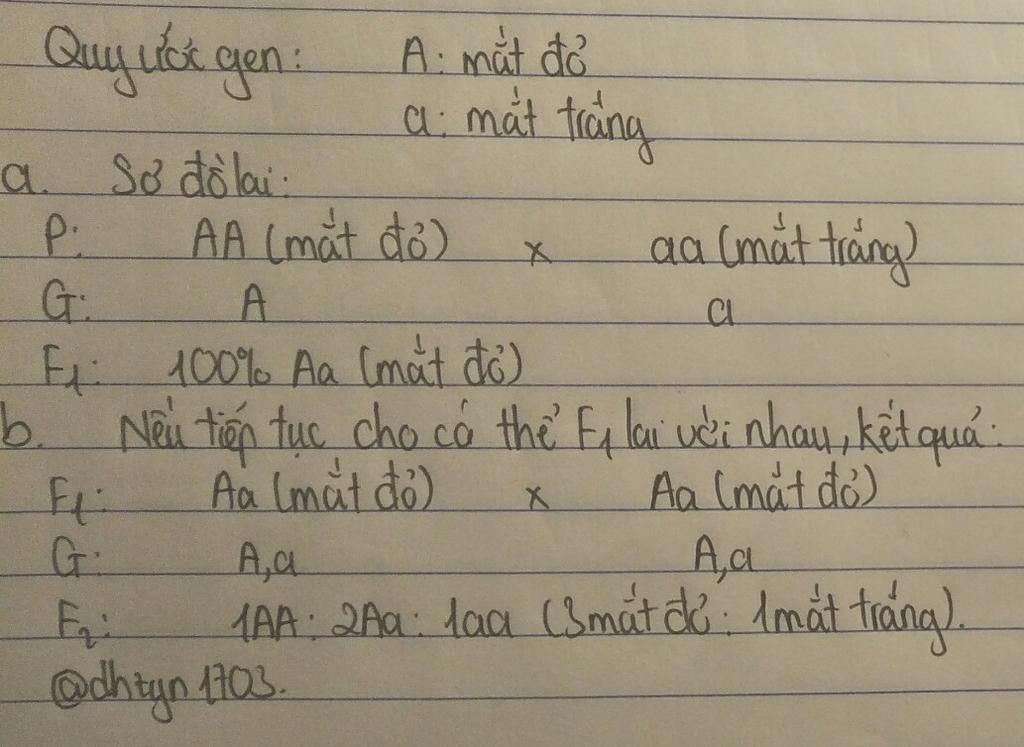 Quy ước gen: A: mắt đỏ
a: mắt trắng
a. Sơ đồ lai:
P: AA (mắt đỏ) x aa (mắt trắng)
G: A a
F₁: 100% Aa (mắt đỏ)
b. Nếu tiếp tục cho cá thể F₁ lai với nhau, kết quả:
F₁: Aa (mắt đỏ) x Aa (mắt đỏ)
G: A,a A,a
F₂: 1AA: 2Aa: 1aa (3 mắt đỏ: 1 mắt trắng).
@dhtyn1703.